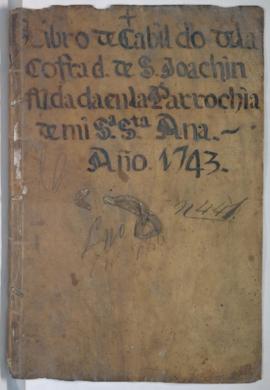 Libro de Cabildo dela
Cofrad. de S. Joachin
fũdada en la Parrochia
de mi Sᵃ Sᵗᵃ Ana. ~
Año. 1743.